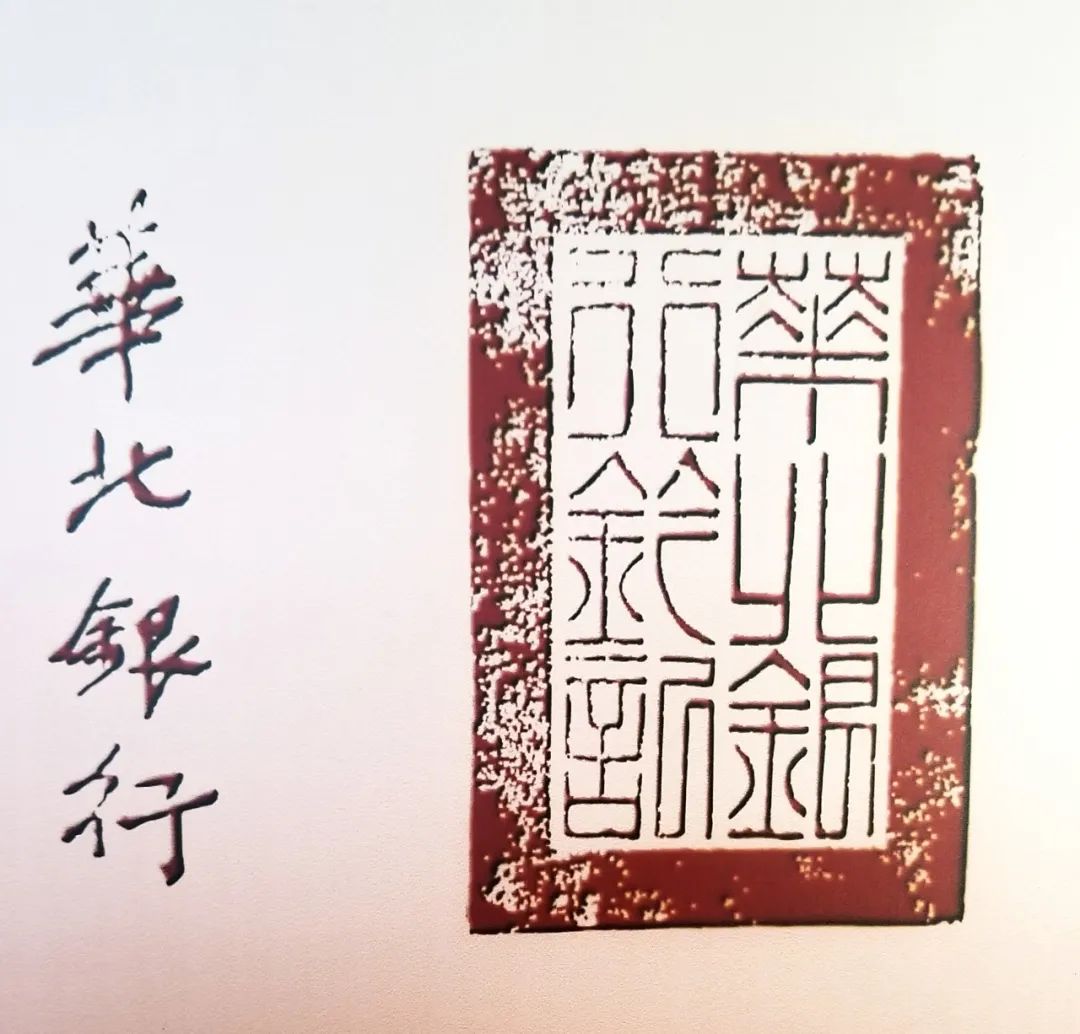 華北銀
行鈐記
華北銀行